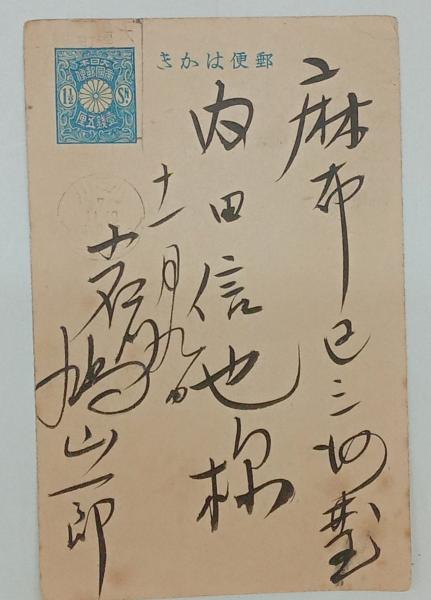 郵便はかき
大日本
帝國郵便
1½ Sn.
壹錢五厘
麻布区三河臺
内田信也様
十一月九日
鳩山一郎